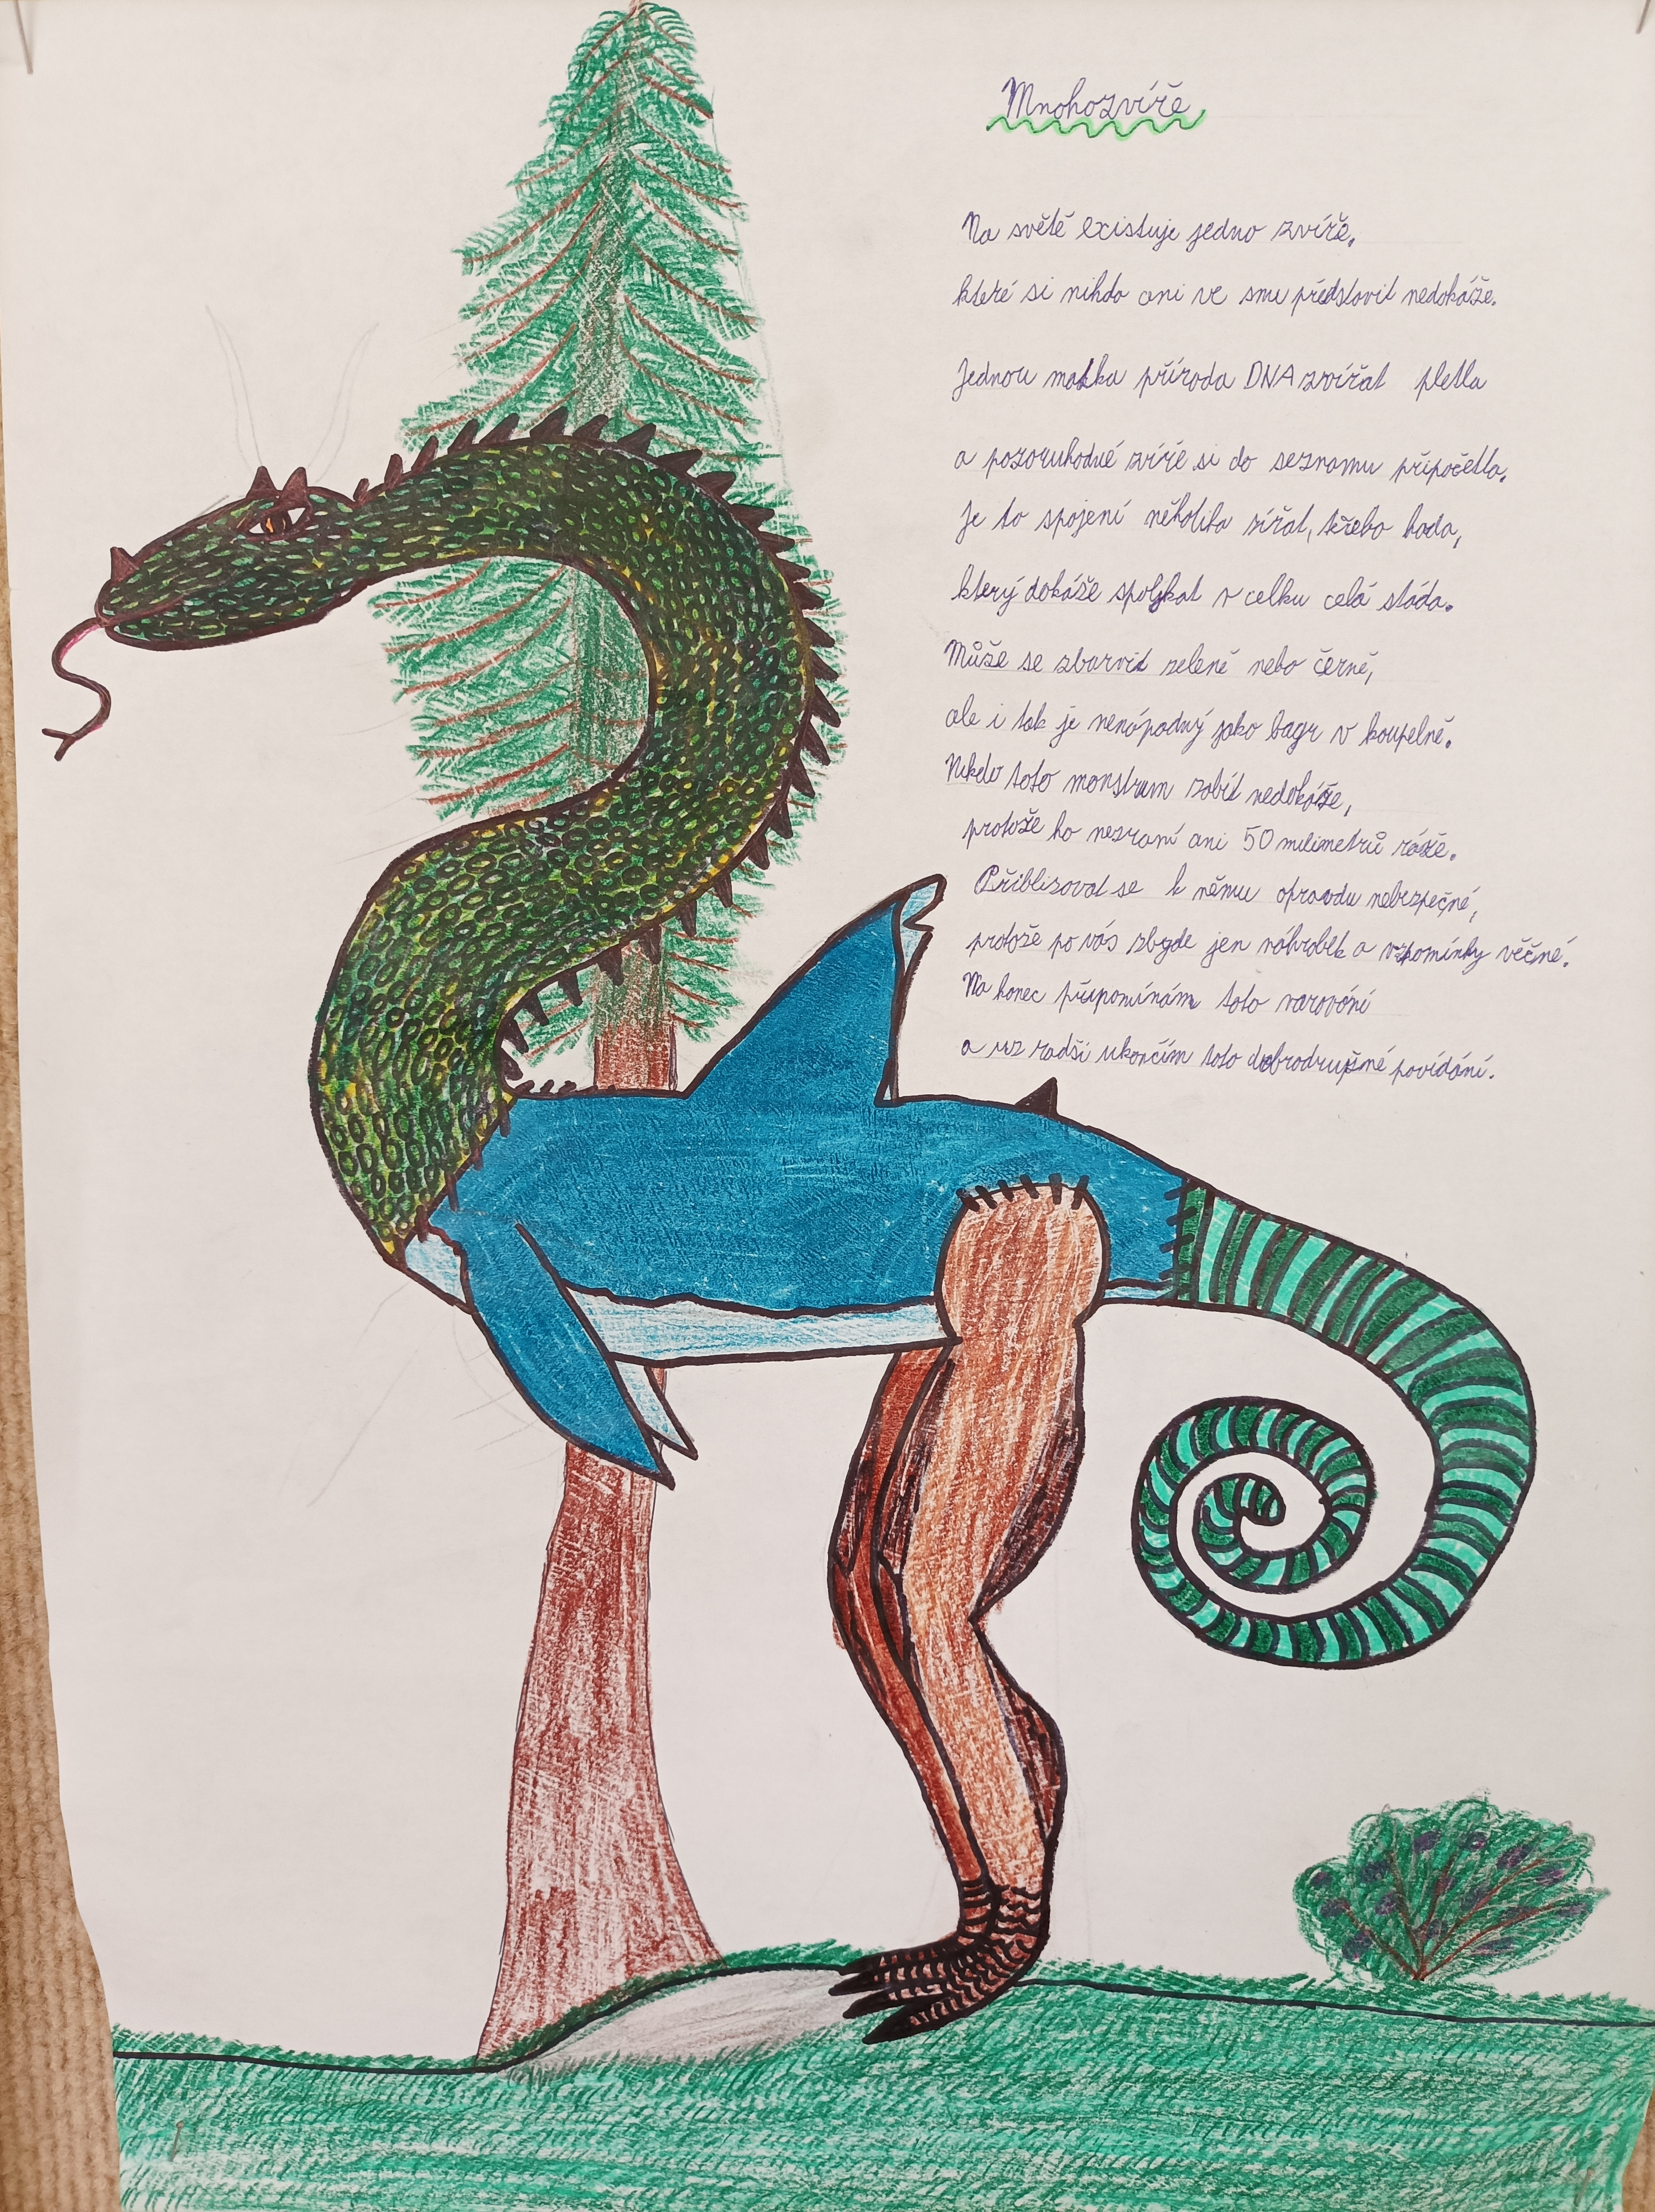 Mnohozvíře
Na světě existuje jedno zvíře,
které si nikdo ani ve snu představit nedokáže.
Jednou matka příroda DNA zvířat pletla
a pozoruhodné zvíře si do seznamu připočetla.
Je to spojení několika zířat, třeba hada,
který dokáže spolykat v celku celá stáda.
Může se zbarvit zeleně nebo černě,
ale i tak je nenápadný jako bagr v koupelně.
Nikdo toto monstrum zabít nedokáže,
protože ho nezraní ani 50 milimetrů ráže.
Přibližovat se k němu opravdu nebezpečné,
protože po vás zbyde jen náhrobek a vzpomínky věčné.
Na konec připomínám toto varování
a už radši ukončím toto dobrodružné povídání.